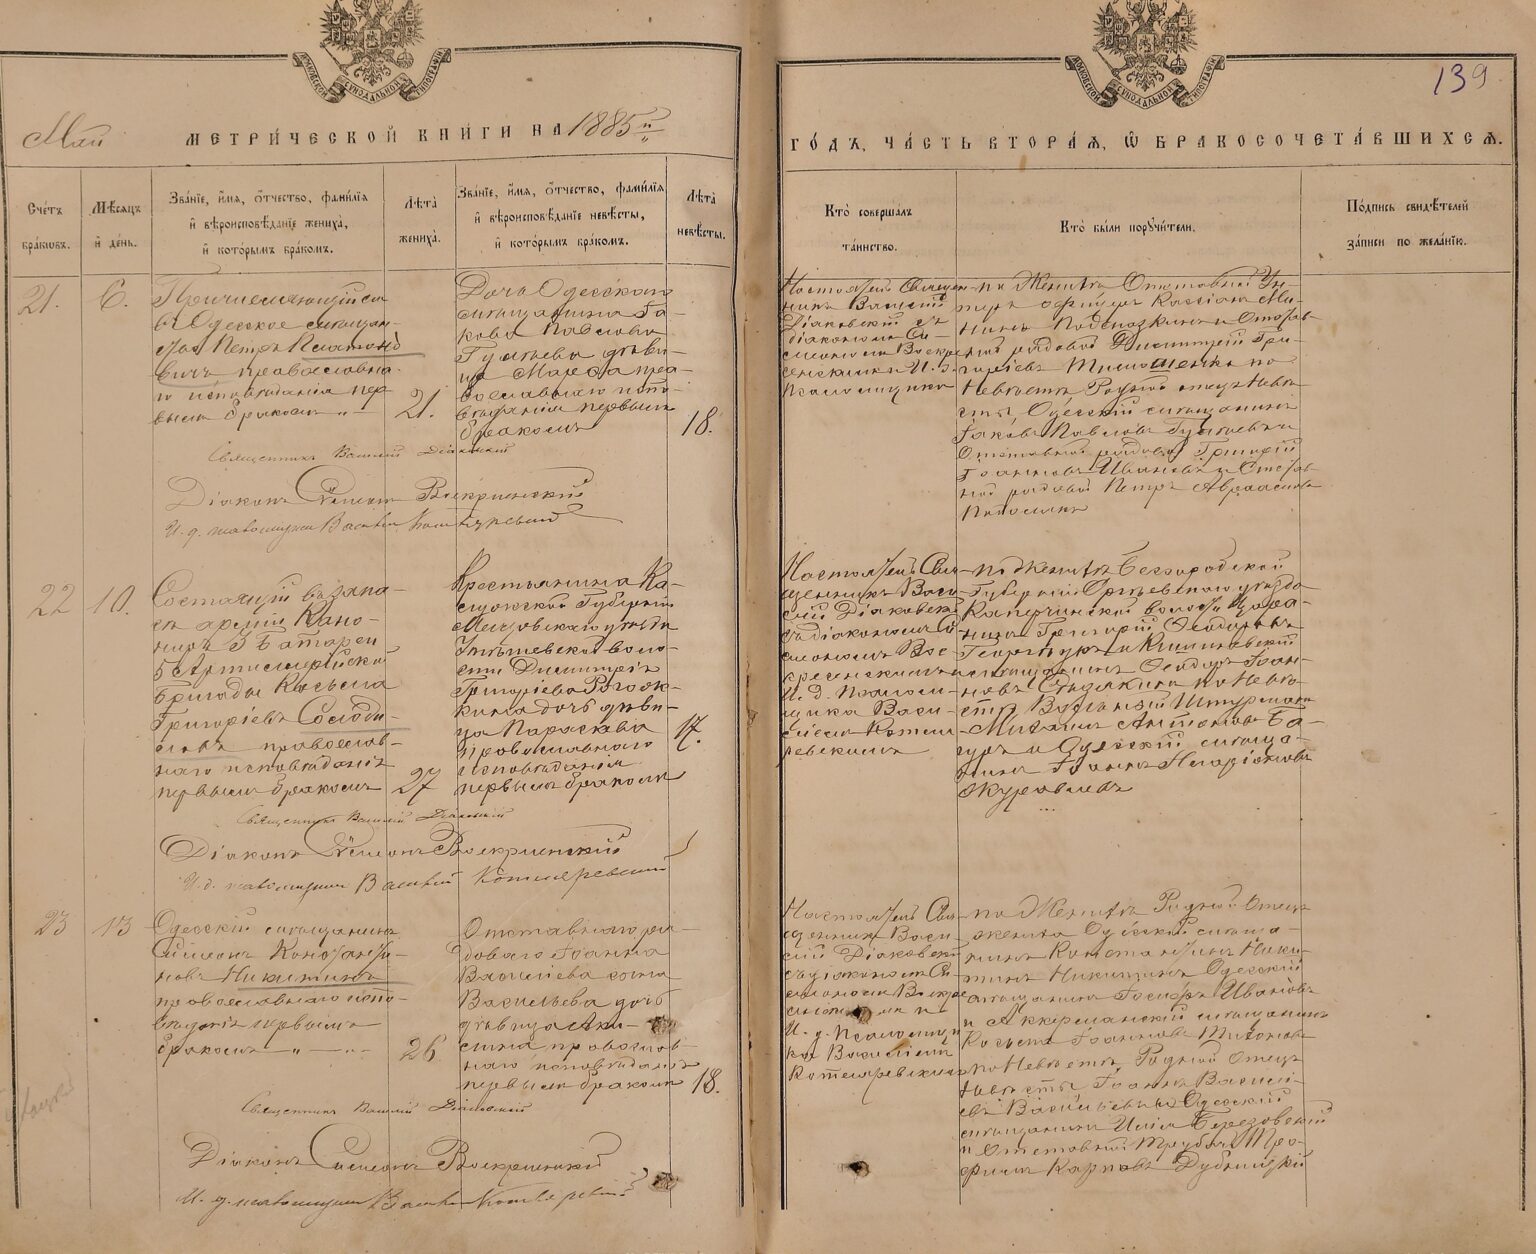 139
Май МЕТРИ́ЧЕСКОЙ КНИ́ГИ НА 1885й
ГО́ДЪ, ЧА́СТЬ ВТОРА́Я, Ѡ҆ БРАКОСОЧЕТА́ВШИХСЯ.
Сче́тъ бра́ковъ.
Мѣ́сяцъ и҆ де́нь.
Зва́нїе, и҆́мя, ѻ҆́тчество, фами́лїя
и҆ вѣроисповѣ́данїе жениха̀,
и҆ кото́рымъ бра́комъ.
Лѣта̀
жениха̀.
Зва́нїе, и҆́мя, ѻ҆́тчество, фами́лїя
и҆ вѣроисповѣ́данїе невѣ́сты,
и҆ кото́рымъ бра́комъ.
Лѣта̀
невѣ́сты.
Кто̀ соверша́лъ
та́инство.
Кто̀ бы́ли поручи́тели.
По́дпись свидѣ́телей
за́писи по жела́нїю.
21.
6.
Причисляющійся
въ Одесское мѣщан-
ство Петръ Платоно
вичъ православна-
го исповѣданія пер
вымъ бракомъ "
21.
Дочь Одесскаго
мѣщанина Іа-
кова Павлова
Гуляева дѣви-
ца Марѳа пра-
вославнаго испо-
вѣданія первымъ
бракомъ
18.
Настоятель Священ-
никъ Василій
Діаковскій съ
діакономъ Си-
меономъ Воскре
сенскимъ И. д.
Псаломщика
по Женихѣ Отставный Ун-
теръ офицеръ Кассіанъ
и Отстав-
ной рядовой Димитрій Гри-
горіевъ Тимошенко по
Невѣстѣ Родной отецъ Невѣ
сты, Одесскій мѣщанинъ
Іаковъ Павловъ Гуляевъ и
Отставной рядовой Григорій
Іоанновъ Ивановъ и Отстав
ной рядовой Петръ
Священникъ Василій Діаковскій
Діаконъ Симеонъ Воскресенскій
И. д. псаломщика Василій Котляревскій
22
10.
Состоящій въ запа-
сѣ арміи Кано-
ниръ 3 Батареи
5 Артиллерійской
Бригады Косьма
Григоріевъ Солоди-
ловъ православ-
наго исповѣданія
первымъ бракомъ
27
Крестьянина Ка-
лужской Губерніи
Мещовскаго уѣзда
воло-
сти Димитрія
Григоріева Рогож-
кина дочь дѣви-
ца Параскева
православнаго
исповѣданія
первымъ бракомъ
17.
Настоятель Свя-
щенникъ Васи-
лій Діаковскій
съ діакономъ Си-
меономъ Вос-
кресенскимъ и
И. д. Псалом-
щика Васи-
ліемъ Котля-
ревскимъ
по Женихѣ Бессарабской
Губерніи Оргѣевскаго уѣзда
волости Цара-
нинъ Григорій Ѳеодоровъ
и Кишиневскій
мѣщанинъ Ѳеодоръ Іоан-
новъ по Невѣ-
стѣ Вольный Штурманъ
Михаилъ Антоновъ Ба-
и Одесскій мѣща-
нинъ Іоаннъ
Журавлевъ
Священникъ Василій Діаковскій
Діаконъ Симеонъ Воскресенскій
И. д. псаломщика Василій Котляревскій
23
13
Одесскій мѣщанинъ
Симеонъ Константи-
новъ Никитинъ
православнаго испо-
вѣданія первымъ
бракомъ "
26.
Отставного ря-
дового Іоанна
Василіева сына
Васильева дочь
дѣвица Аки-
лина православ-
наго исповѣданія
первымъ бракомъ
18.
Настоятель Свя-
щенникъ Васи-
лій Діаковскій
съ діакономъ Си-
меономъ Воскре
и
И. д. Псаломщи
ка Василіемъ
Котляревскимъ
по Женихѣ Родной Отецъ
жениха Одесскій мѣща-
нинъ Константинъ Ники-
тинъ Никитинъ Одесскій
мѣщанинъ Іосифъ Ивановъ
и Аккерманскій мѣщанинъ
Косьма Іоанновъ Тихоновъ
по Невѣстѣ, Родной Отецъ
Невѣсты Іоаннъ Василі-
евъ Васильевъ и Одесскій
мѣщанинъ Илія Березовскій
и Отставный Трубачъ Тро-
фимъ Карповъ Дубницкій
Священникъ Василій Діаковскій
Діаконъ Симеонъ Воскресенскій
И. д. псаломщика Василій Котляревскій